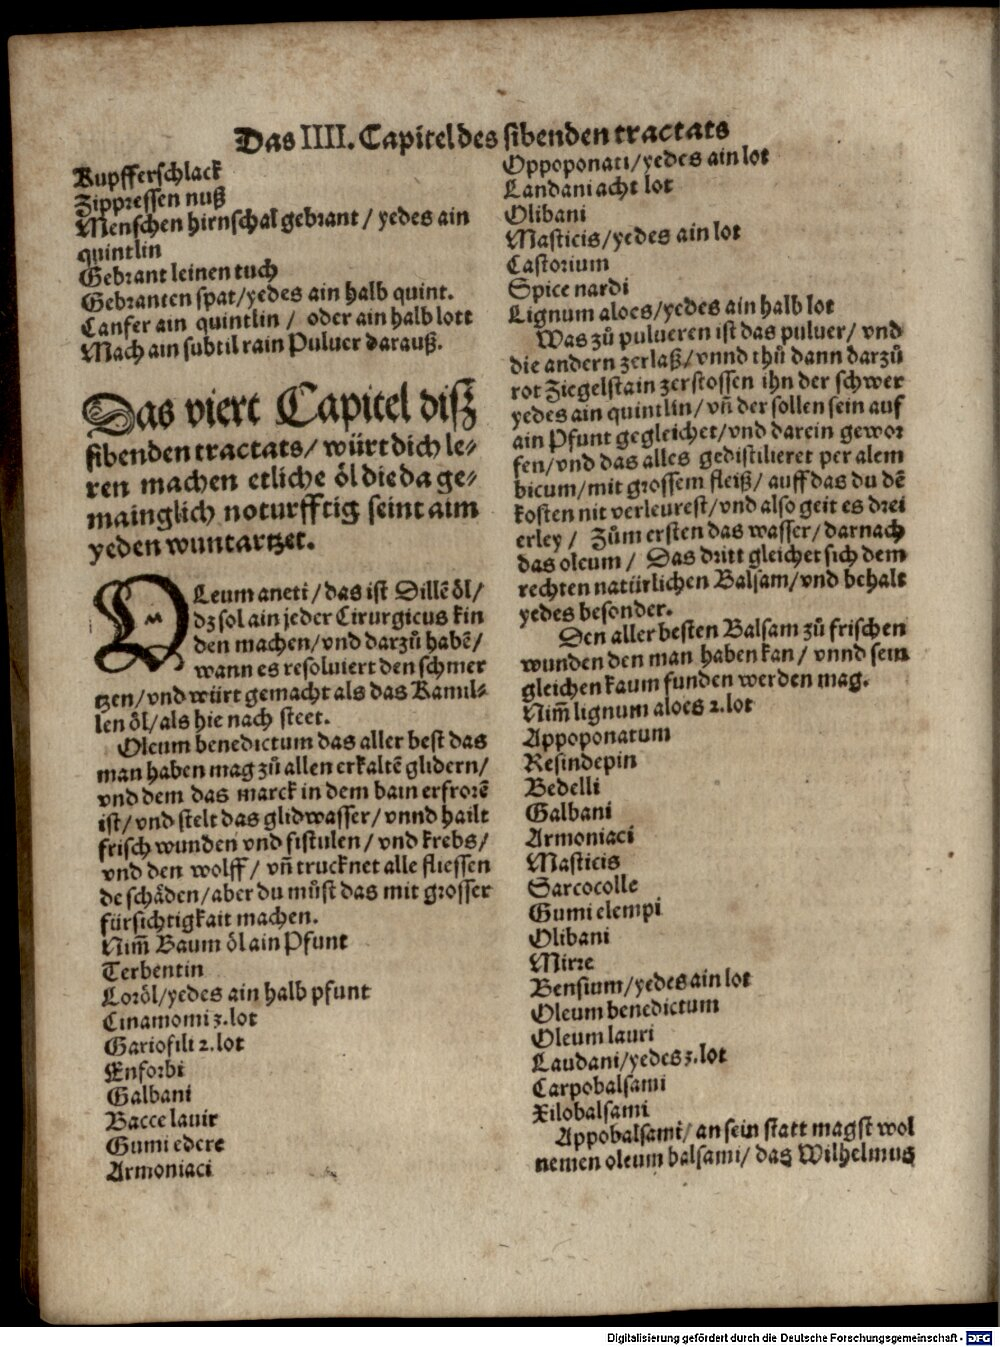 Das IIII. Capitel des sibenden tractats
Kupfferschlack
Zippressen nuß
Menschen hirnschal gebrant / yedes ain
quintlin
Gebrant leinen tuch
Gebranten spat/yedes ain halb quint.
Canfer ain quintlin / oder ain halb lott
Mach ain subtil rain Puluer darauß.
Das viert Capitel disz
sibenden tractats/ würt dich le⸗
ren machen etliche öl die da ge⸗
mainglich noturfftig seint aim
yeden wuntartzet.
OLeum aneti / das ist Dillē öl/
dz sol ain jeder Cirurgicus kin
den machen/vnd darzů habē/
wann es resoluiert den schmer
tzen/vnd würt gemacht als das Kamil⸗
len öl/als hie nach steet.
Oleum benedictum das aller best das
man haben mag zů allen erkaltē glidern/
vnd dem das marck in dem bain erfrorē
ist/vnd stelt das glidwasser/vnnd hailt
frisch wunden vnd fistulen/vnd krebs/
vnd den wolff/ vñ trucknet alle fliessen
de schäden/aber du můst das mit grosser
fürsichtigkait machen.
Nim̃ Baum öl ain Pfunt
Terbentin
Loröl/yedes ain halb pfunt
Cinamomi 3.lot
Gariofili 2.lot
Enforbi
Galbani
Bacce lauir
Gumi edere
Armoniaci
Oppoponati/yedes ain lot
Landani acht lot
Olibani
Masticis/yedes ain lot
Castorium
Spice nardi
Lignum aloes/yedes ain halb lot
Was zů pulueren ist das puluer/ vnd
die andern zerlaß/vnnd thů dann darzů
rot Ziegelstain zerstossen ihn der schwer
yedes ain quintlin/vñ der sollen sein auf
ain Pfunt gegleichet/vnd darein gewor
fen/vnd das alles gedistilieret per alem
bicum/mit grossem fleiß/ auff das du dē
kosten nit verleurest/vnd also geit es drei
erley / Zům ersten das wasser/darnach
das oleum / Das dritt gleichet sich dem
rechten natürlichen Balsam/vnd behalt
yedes besonder.
Den aller besten Balsam zů frischen
wunden den man haben kan / vnnd sein
gleichen kaum funden werden mag.
Nim̃ lignum aloes 2.lot
Appoponatum
Resindepin
Bedelli
Galbani
Armoniaci
Masticis
Sarcocolle
Gumi elempi
Olibani
Mirre
Bensium/yedes ain lot
Oleum benedictum
Oleum lauri
Laudani/yedes 3.lot
Carpobalsami
Xilobalsami
Appobalsami/ an sein statt magst wol
nemen oleum balsami/ das Wilhelmus
Digitalisierung gefördert durch die Deutsche Forschungsgemeinschaft - DFG